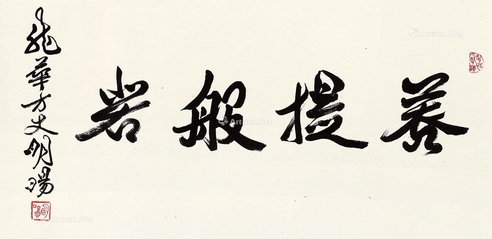 菩提般若
龍華方丈明暘